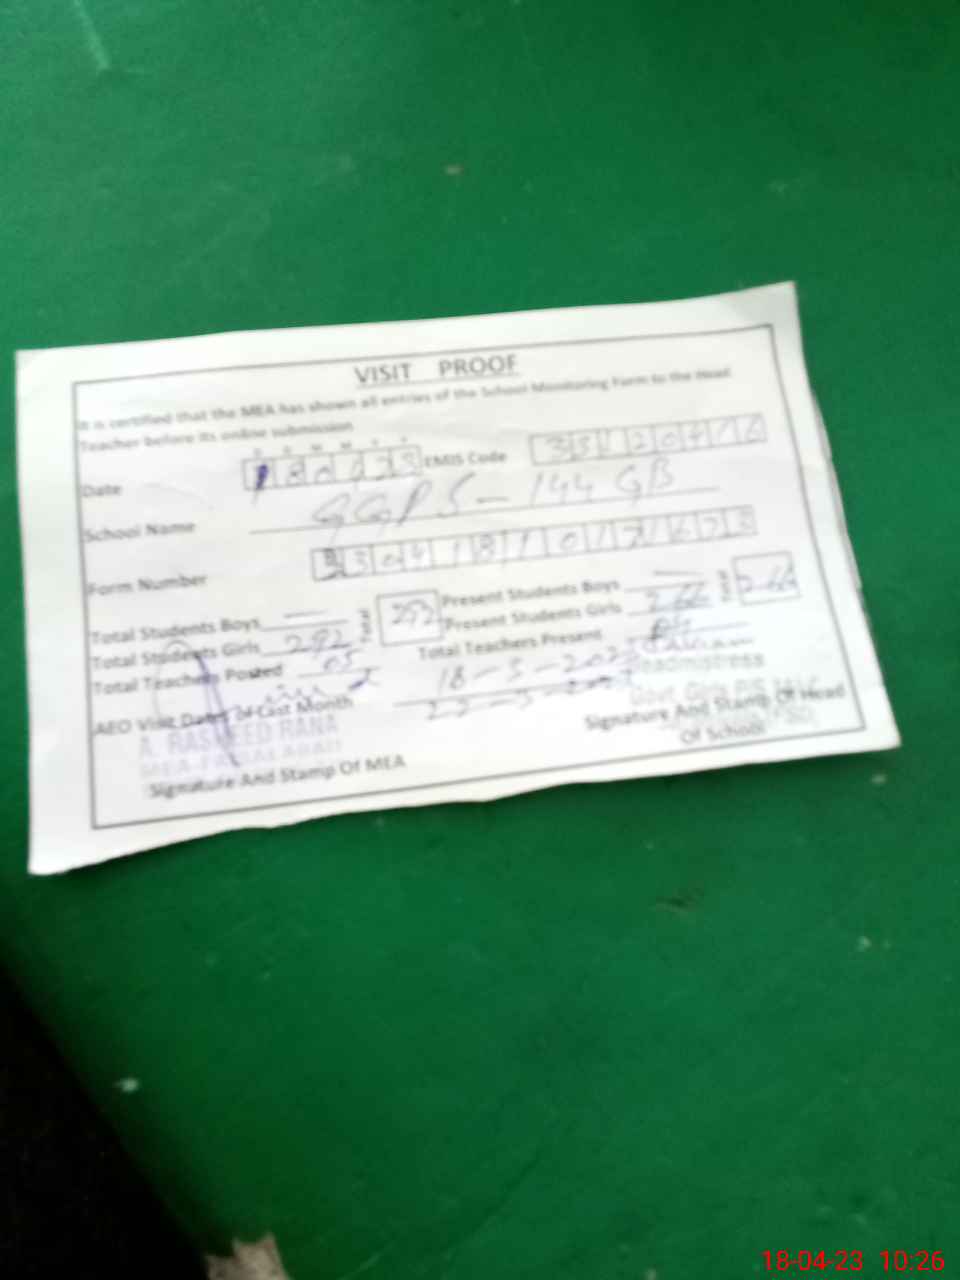 VISIT PROOF
It is certified that the MEA has shown all entries of the School Monitoring Form to the Head
Teacher before its online submission
D D M M Y Y
Date 180423 EMIS Code 33120416
School Name GGPS - 144 GB
Form Number
Total Students Boys — Total 292 Present Students Boys — Total 266
Total Students Girls 292 Present Students Girls 266
Total Teachers Posted 05 Total Teachers Present 04
AEO Visit Dates of Last Month 18-3-2023
22-3-2023
Headmistress
Govt. Girls P/S 144
A. RASHEED RANA
MEA FAISALABAD
Signature And Stamp Of MEA
Signature And Stamp Of Head
Of School
18-04-23 10:26